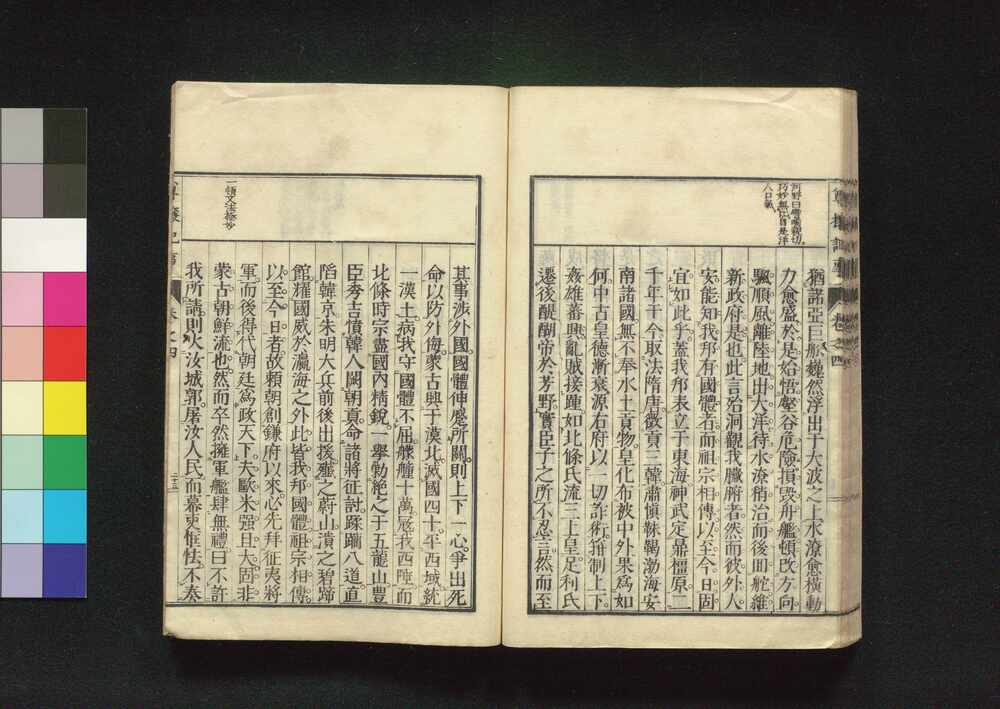 阿野曰譬喩親切
巧妙無比自是洋
人口氣
猶諾亞巨舩巍然浮出于大波之上水潦愈橫動
力愈盛於是始悟壑谷危險損毀舟艦頓改方向
飄順風離陸地出大洋待水潦稍治而後回舵維
新政府是也此言殆洞觀我臟腑者然而彼外人
安能知我邦有國體者而祖宗相傳以至今日固
宜如此乎蓋我邦表立于東海神武定鼎橿原二
千年于今取法隋唐徵貢三韓肅愼靺鞨渤海安
南諸國無不奉水土貢物皇化布被中外果爲如
何中古皇德漸衰源右府以一切詐術籍制上下
姦雄蕃興亂賊接踵如北條氏流三上皇足利氏
遷後醍醐帝於芳野實臣子之所不忍言然而至
卷之四
一頓文法極妙
其事涉外國國體伸屈所關則上下一心爭出死
命以防外侮蒙古興于漠北滅國四十平西域統
一漢土病我守國體不屈艨艟十萬寇我西陲而
北條時宗盡國內精銳一擧勦絶之于五龍山豐
臣秀吉憤韓人闕朝貢命諸將征討蹂躪八道直
陷韓京朱明大兵前後出援殲之蔚山潰之碧蹄
館耀國威於瀛海之外此皆我邦國體祖宗相傳
以至今日者故賴朝創鎌府以來必先拜征夷將
軍而後得代朝廷爲政天下夫歐米强且大固非
蒙古朝鮮流也然而卒然擁軍艦肆無禮曰不許
我所請則火汝城郭屠汝人民而幕吏恇怯不奉
卷之四